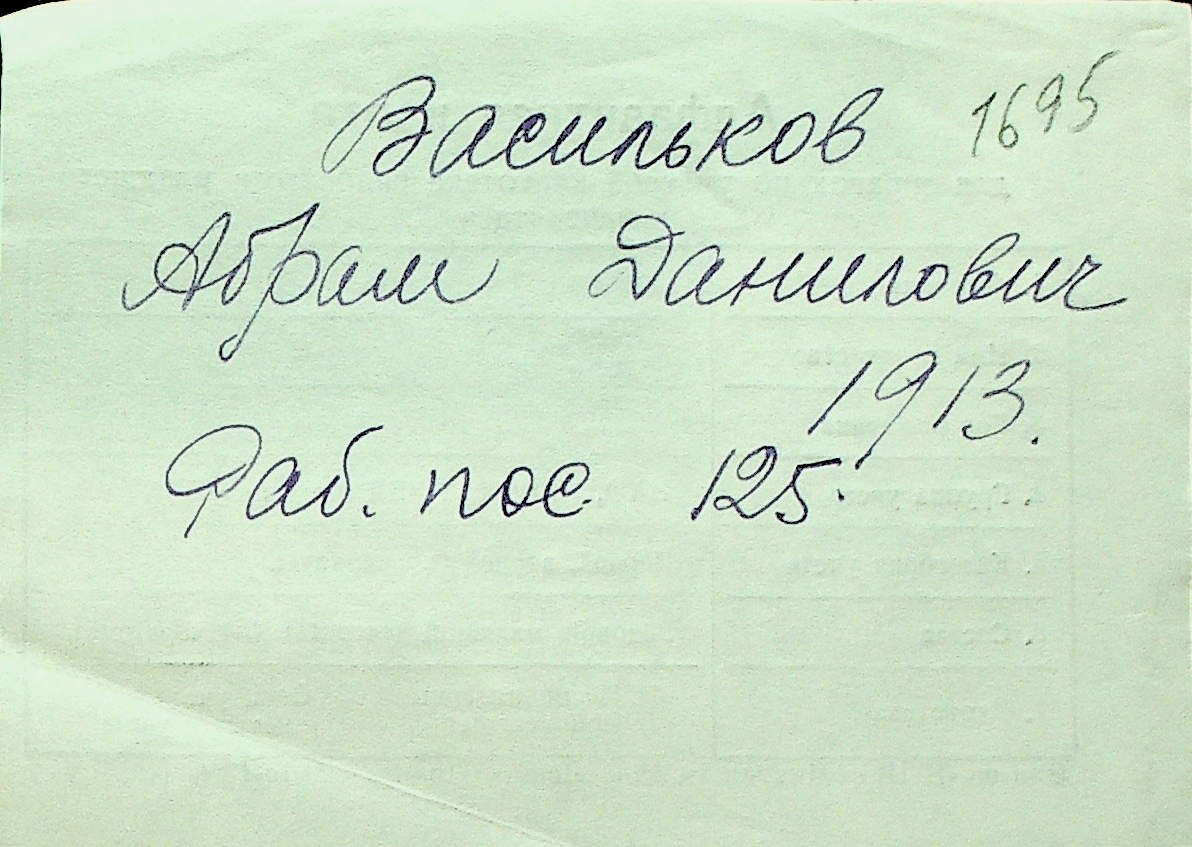 Васильков 1695
Абрам Данилович
1913.
Раб. пос. 125.